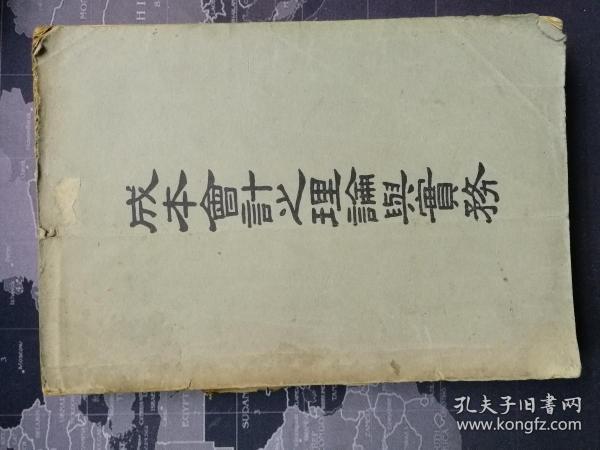 成本會計之理論與實務
孔夫子旧書网
www.kongfz.com
SUDAN
Moscow